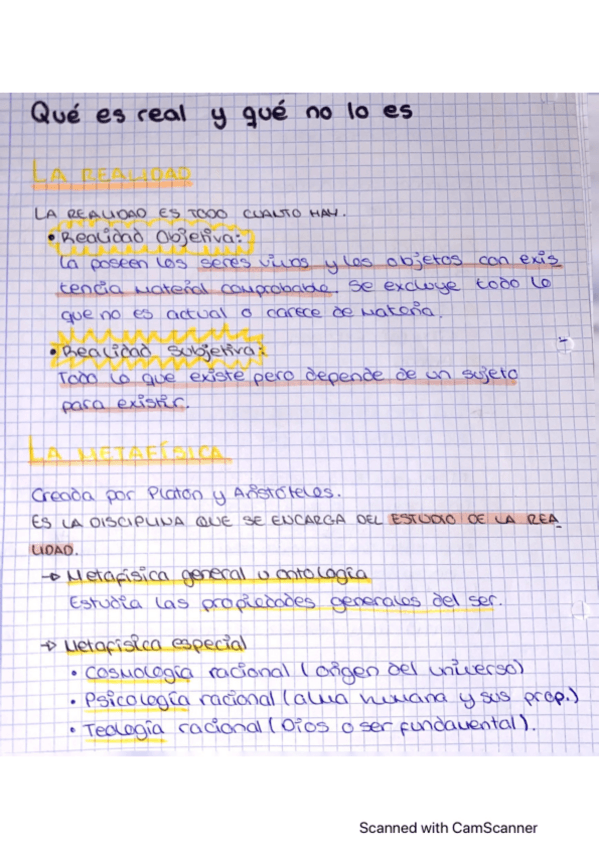 Qué es real y qué no lo es
LA REALIDAD
LA REALIDAD ES TODO CUANTO HAY.
• Realidad Objetiva:
La poseen los seres vivos y los objetos con exis
tencia material comprobable. Se excluye todo lo
que no es actual o carece de materia.
• Realidad Subjetiva:
Todo lo que existe pero depende de un sujeto
para existir.
LA METAFÍSICA
Creada por Platón y Aristóteles.
ES LA DISCIPLINA QUE SE ENCARGA DEL ESTUDIO DE LA REA
LIDAD.
→ Metafísica general u ontología
Estudia las propiedades generales del ser.
→ Metafísica especial
• Cosmología racional (origen del universo)
• Psicología racional (alma humana y sus prop.)
• Teología racional (Dios o ser fundamental).
Scanned with CamScanner